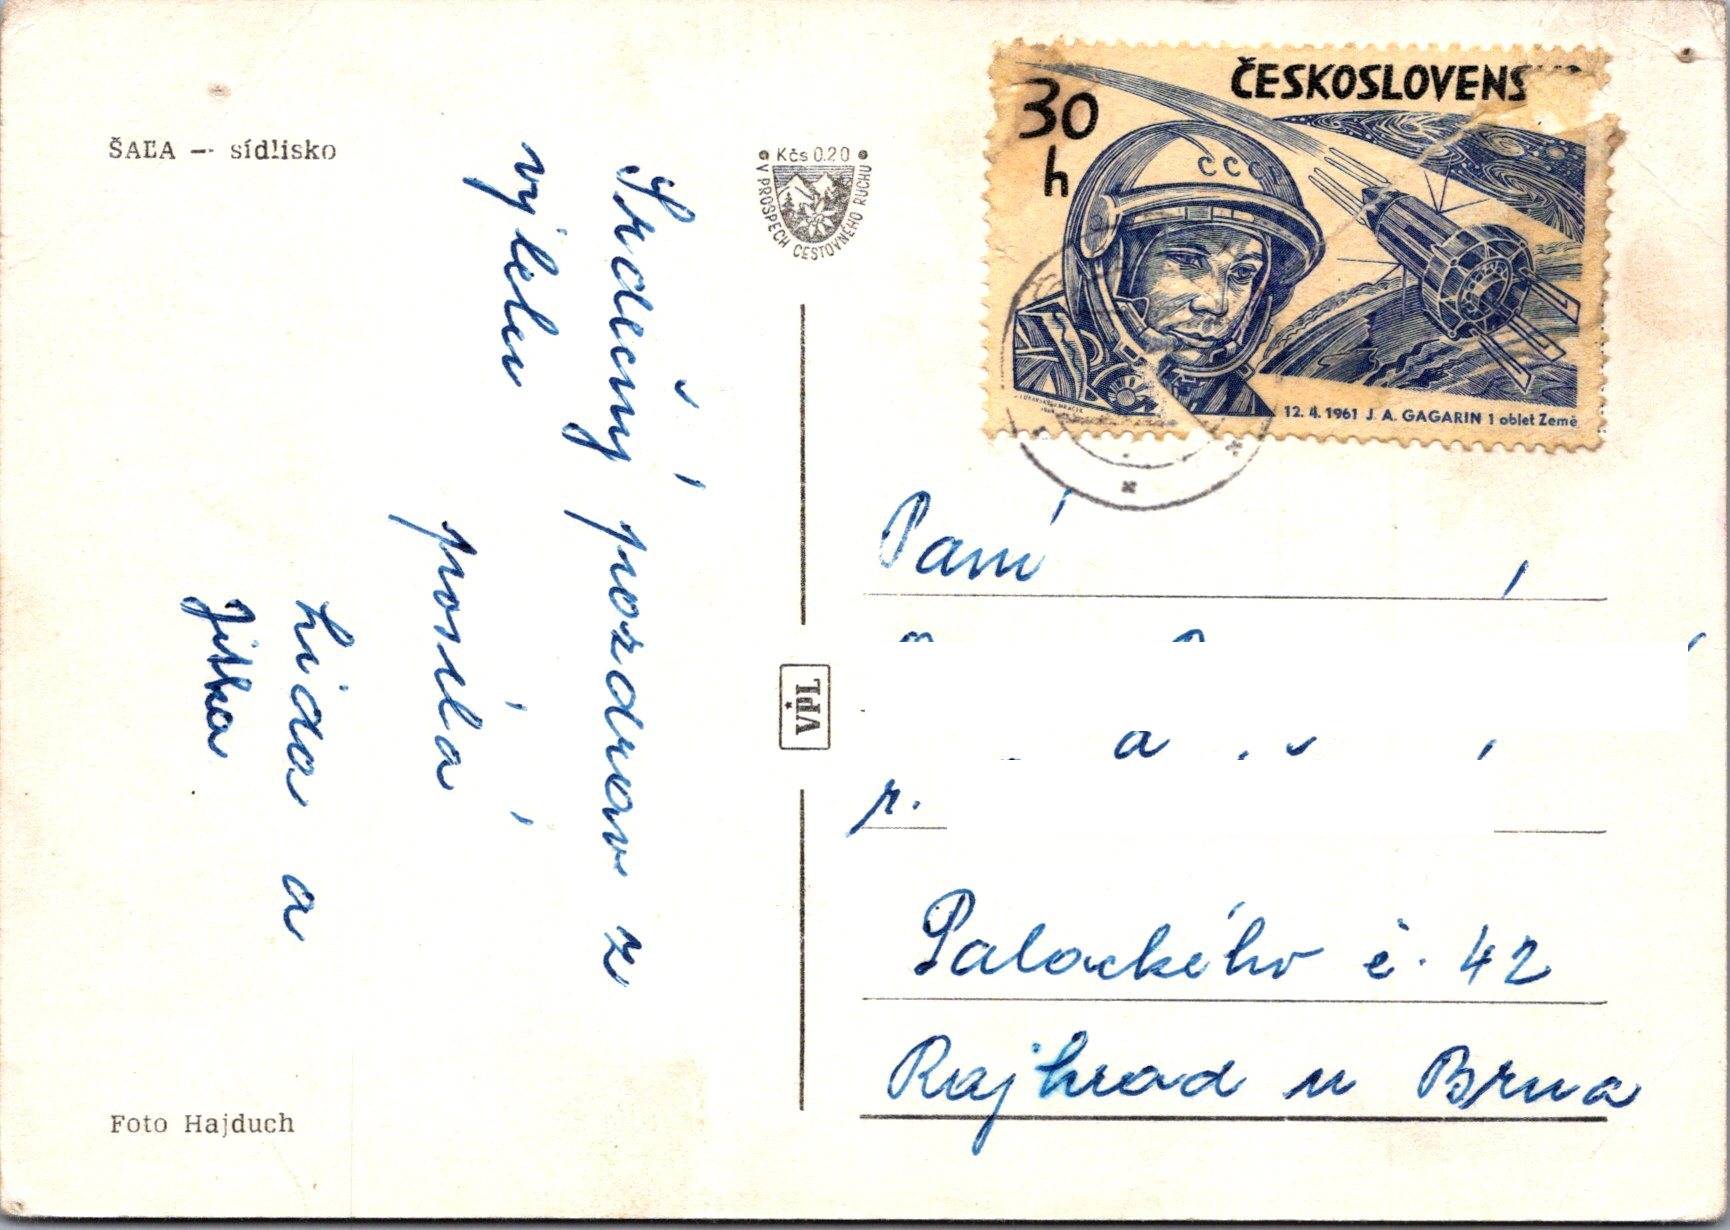 ŠAĽA — sídlisko
Kčs 0.20
V PROSPECH CESTOVNÉHO RUCHU
Srdečný pozdrav z
výletu
posílá
Lída a
Jitka
Foto Hajduch
VPL
30
h
ČESKOSLOVENS
CCC
12. 4. 1961 J. A. GAGARIN 1 oblet Země
Paní
a
r.
Palackého č. 42
Rajhrad u Brna